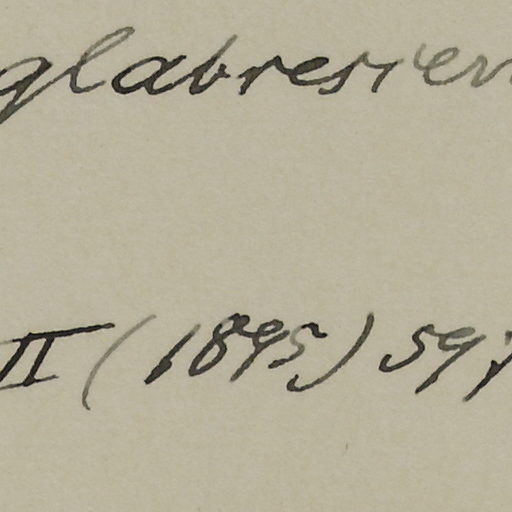 glabresien
II (1895) 597